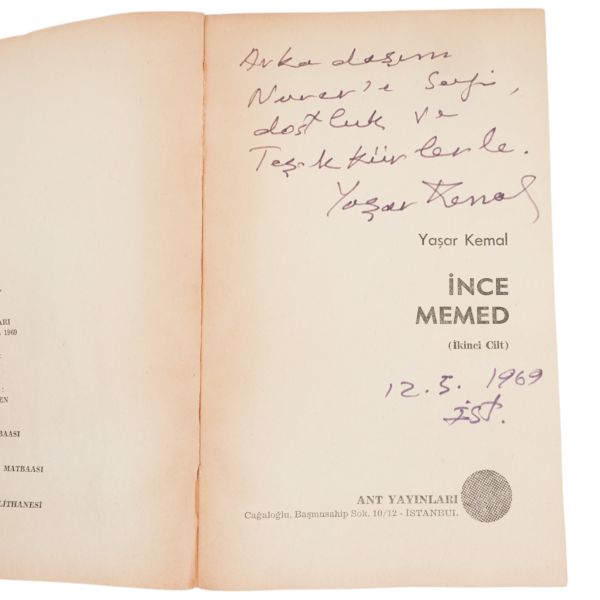 ARI
1969
:
EN
BAASI
MATBAASI
LİTHANESİ
Arkadaşım
Nurer'e Sevgi,
dostluk ve
Teşekkürlerle.
Yaşar Kemal
Yaşar Kemal
İNCE
MEMED
(İkinci Cilt)
12.5.1969
İST.
ANT YAYINLARI
Cağaloğlu, Başmusahip Sok. 10/12 - İSTANBUL